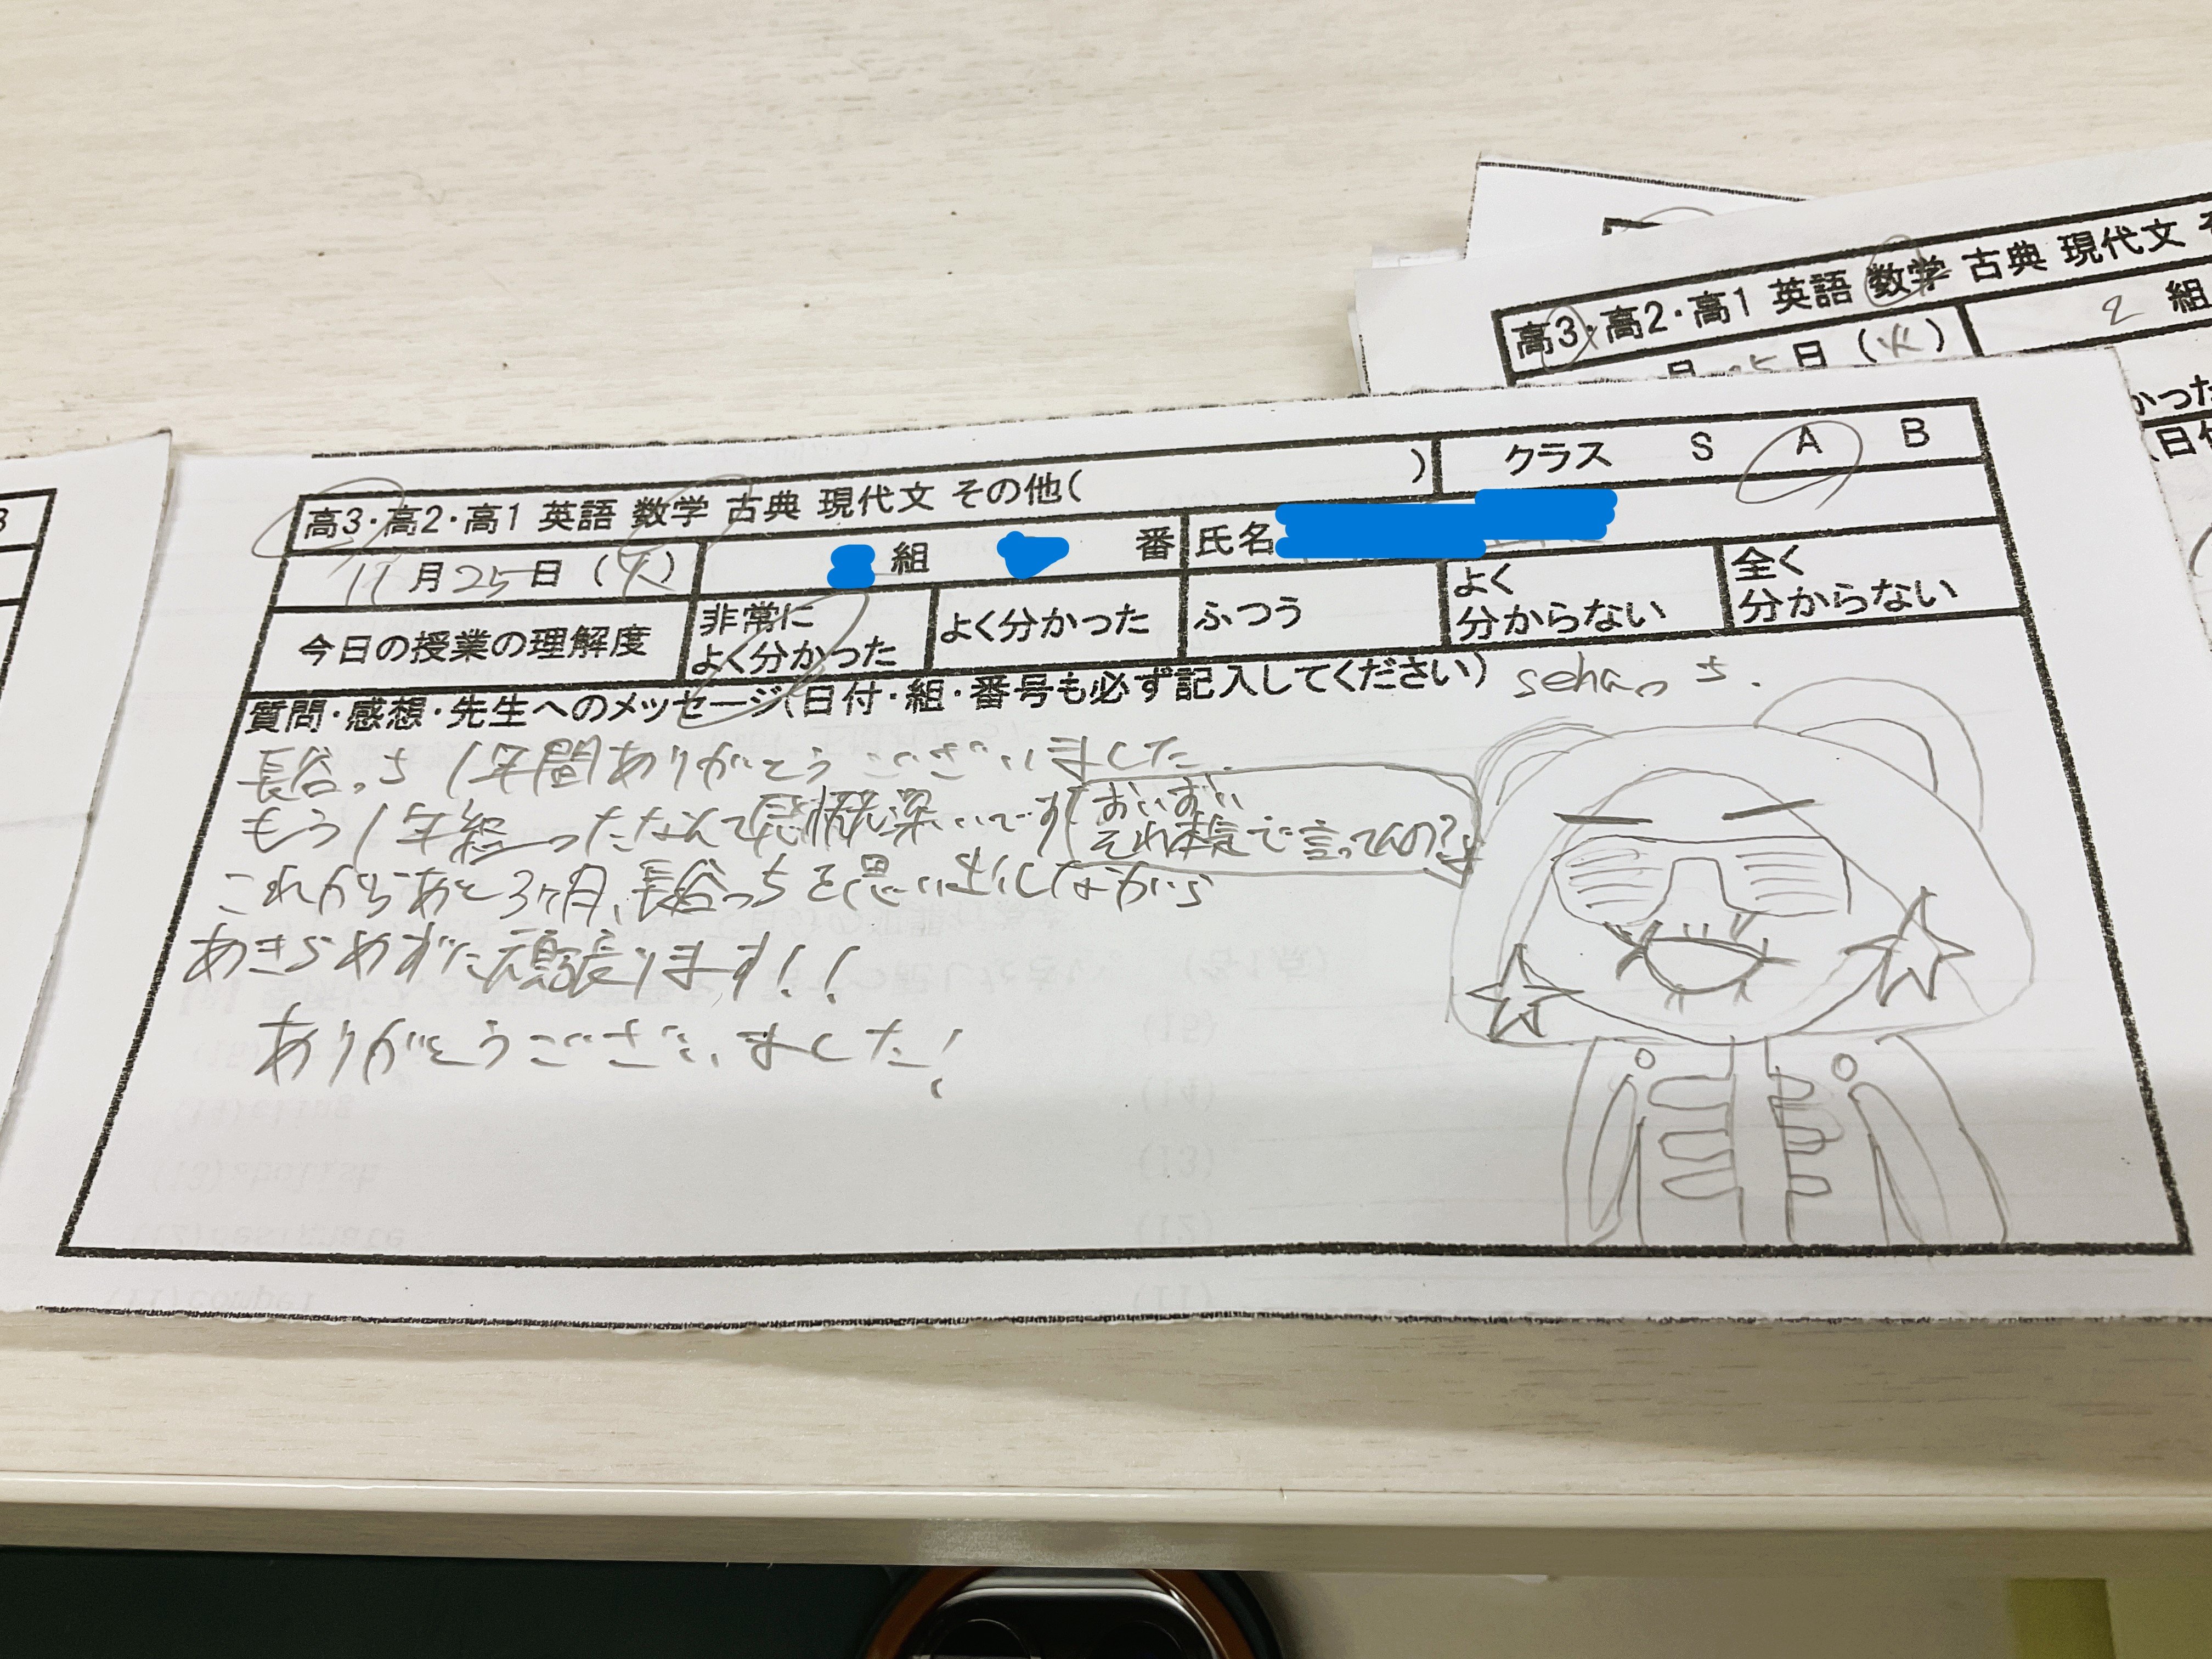 高3・高2・高1 英語 数学 古典 現代文 その他( ) クラス S A B
11月25日(火) 組 番 氏名
今日の授業の理解度 非常によく分かった よく分かった ふつう よく分からない 全く分からない
質問・感想・先生へのメッセージ(日付・組・番号も必ず記入してください)
長谷っち 1年間ありがとうございました.
もう1年経ったなんて感慨深いです
おいすい
それ本気で言ってんの?
これからあと3ヶ月、長谷っちを思い出しながら
あきらめずに頑張ります!!
ありがとうございました!
高3・高2・高1 英語 数学 古典 現代文
月 25日(火) 2 組